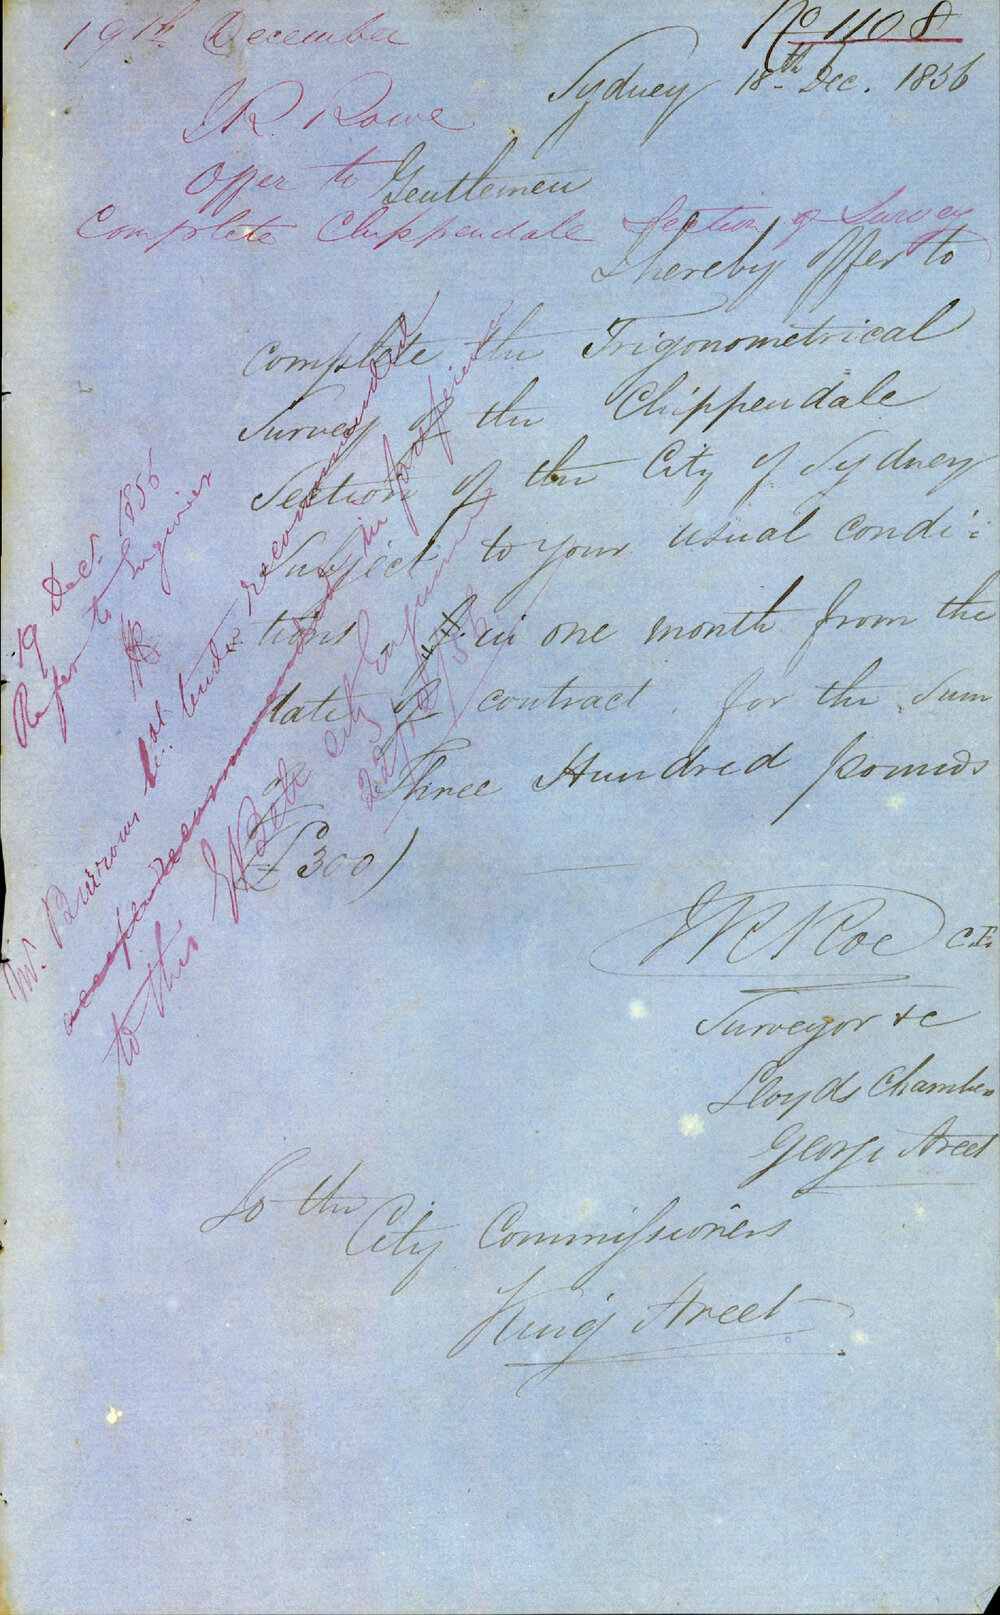 No 1108
19th December
Sydney 18th Dec. 1856
J R Rowe
offer to
Complete Chippendale Section of Survey
Gentlemen
I hereby offer to
complete the Trigonometrical
Survey of the Chippendale
Section of the City of Sydney
Subject to your usual condi=
tions, in one month from the
date of contract, for the Sum
of Three Hundred pounds
(£300)
J R Roe C.E.
Surveyor &c
Lloyds Chambers
George Street
To the
City Commissioners
King Street
19 Dec. 1856
Refer to Engineer
Mr. Burrows' tender recommended
in preference
to this
City Engineer